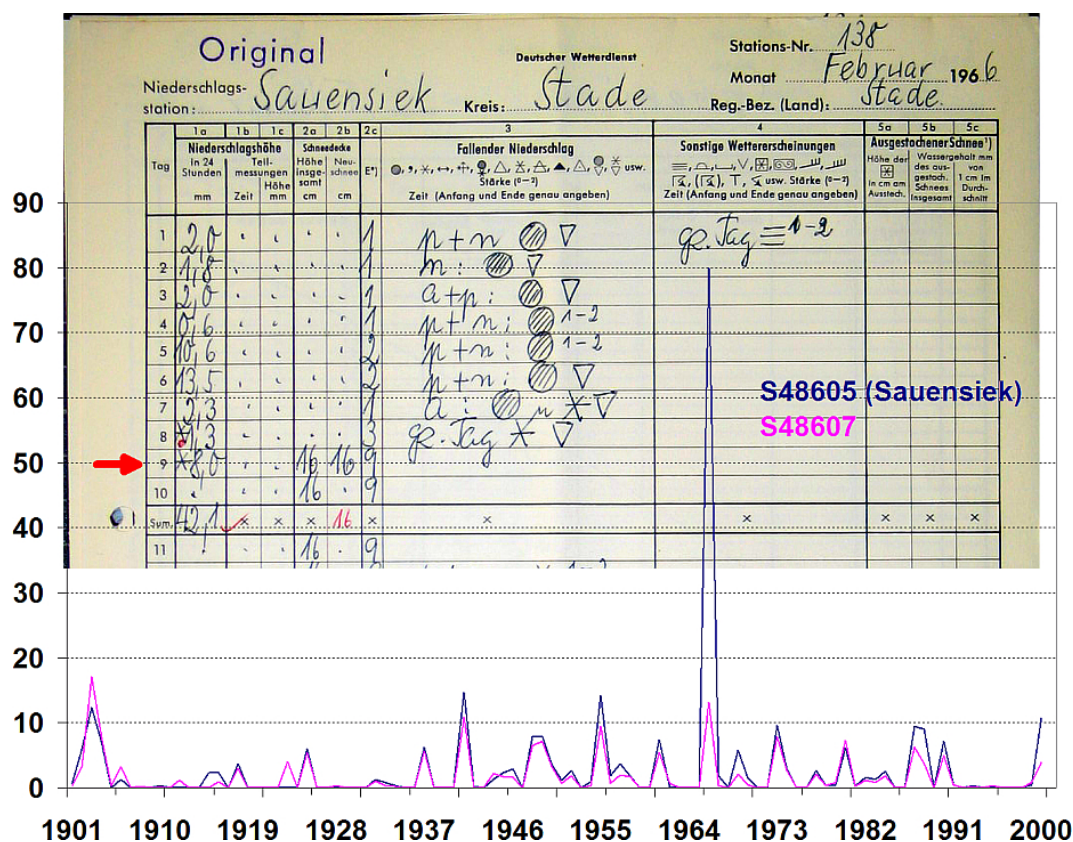 Original
Deutscher Wetterdienst
Stations-Nr. 138
Monat Februar 1966
Niederschlags-station: Sauensiek Kreis: Stade Reg.-Bez. (Land): Stade.
1a 1b 1c 2a 2b 2c 3 4 5a 5b 5c
Tag
Niederschlagshöhe
In 24 Stunden mm
Teilmessungen
Zeit
Höhe mm
Schneedecke
Höhe insgesamt cm
Neuschnee cm
E*)
Fallender Niederschlag
usw.
Stärke (0–2)
Zeit (Anfang und Ende genau angeben)
Sonstige Wettererscheinungen
usw. Stärke (0–2)
Zeit (Anfang und Ende genau angeben)
Ausgestochener Schnee¹)
Höhe der
in cm am Ausstech.
Wassergehalt mm
des ausgestoch. Schnees insgesamt
von 1 cm im Durchschnitt
1 2,0 1 p+n gz. Tag 1-2
2 1,8 1 n:
3 2,0 1 a+p:
4 0,6 1 p+n: 1-2
5 10,6 2 p+n: 1-2
6 13,5 2 p+n:
7 2,3 1 a:
8 1,3 3 gz. Tag
9 8,0 16 16 9
10 . 16 . 9
Sum. 42,1 × × × 16 × × × × × ×
11 . 16 . 9
90
80
70
60
50
40
30
20
10
0
S48605 (Sauensiek)
S48607
1901 1910 1919 1928 1937 1946 1955 1964 1973 1982 1991 2000